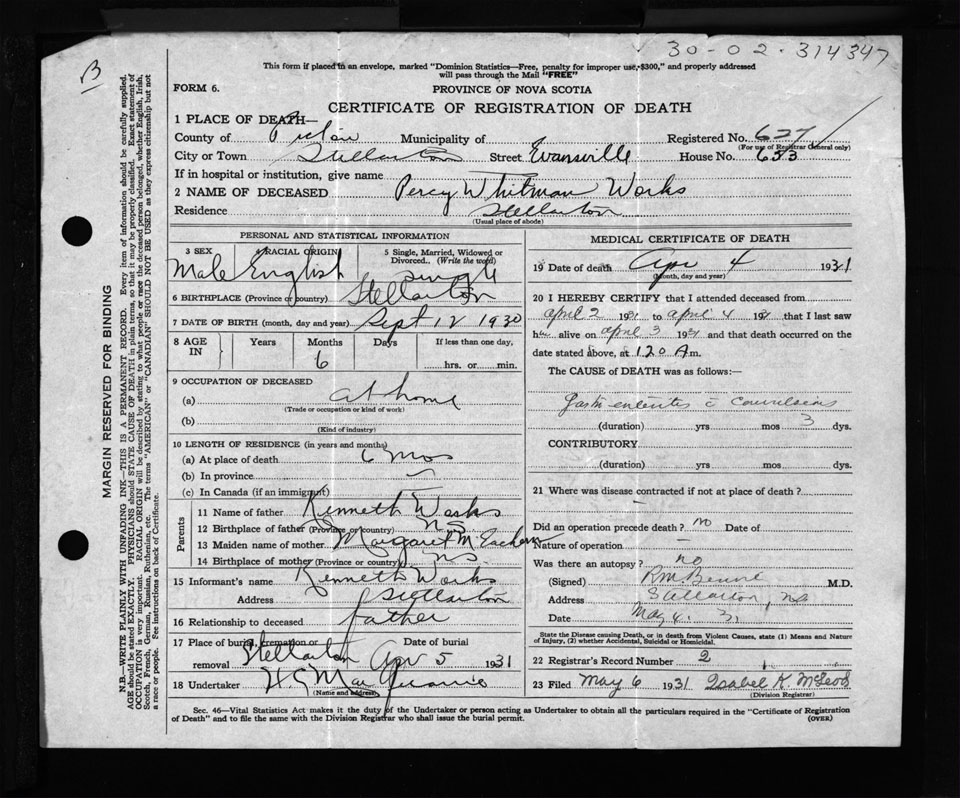 30-02-314347
B
This form if placed in an envelope, marked "Dominion Statistics—Free, penalty for improper use, $300," and properly addressed
will pass through the Mail "FREE"
FORM 6.
PROVINCE OF NOVA SCOTIA
CERTIFICATE OF REGISTRATION OF DEATH
1 PLACE OF DEATH—
County of Pictou Municipality of Registered No. 627
(For use of Registrar General only)
City or Town Stellarton Street Evansville House No. 653
If in hospital or institution, give name
2 NAME OF DECEASED Percy Whitman Works
Residence Stellarton
(Usual place of abode)
PERSONAL AND STATISTICAL INFORMATION
3 SEX 4 RACIAL ORIGIN 5 Single, Married, Widowed or
Divorced.. (Write the word)
Male English single
6 BIRTHPLACE (Province or country) Stellarton
7 DATE OF BIRTH (month, day and year) Sept 12 1930
8 AGE IN Years Months Days If less than one day,
6 hrs. or min.
9 OCCUPATION OF DECEASED
(a) at home
(Trade or occupation or kind of work)
(b)
(Kind of industry)
10 LENGTH OF RESIDENCE (in years and months)
(a) At place of death 6 mos
(b) In province
(c) In Canada (if an immigrant)
Parents
11 Name of father Kenneth Works
12 Birthplace of father (Province or country) NS
13 Maiden name of mother Margaret McEachern
14 Birthplace of mother (Province or country) NS
15 Informant's name Kenneth Works
Address Stellarton
16 Relationship to deceased father
17 Place of burial, cremation or removal Stellarton Date of burial Apr 5 1931
18 Undertaker
(Name and address)
MEDICAL CERTIFICATE OF DEATH
19 Date of death Apr 4 1931
(Month, day and year)
20 I HEREBY CERTIFY that I attended deceased from
april 2 1931 to april 4 1931 that I last saw
him alive on april 3 1931 and that death occurred on the
date stated above, at 120 A m.
The CAUSE of DEATH was as follows:—
Gastro-enteritis c̄ convulsions
(duration) yrs mos 3 dys.
CONTRIBUTORY
(duration) yrs mos dys.
21 Where was disease contracted if not at place of death?
Did an operation precede death? no Date of
Nature of operation —
Was there an autopsy? no
(Signed) M.D.
Address Stellarton, NS
Date May 4. 31
State the Disease causing Death, or in death from Violent Causes, state (1) Means and Nature
of Injury, (2) whether Accidental, Suicidal or Homicidal.
22 Registrar's Record Number 2
23 Filed May 6 1931 Isabel K McLeod
(Division Registrar)
Sec. 46—Vital Statistics Act makes it the duty of the Undertaker or person acting as Undertaker to obtain all the particulars required in the "Certificate of Registration
of Death" and to file the same with the Division Registrar who shall issue the burial permit.
(OVER)
MARGIN RESERVED FOR BINDING
N.B.—WRITE PLAINLY WITH UNFADING INK—THIS IS A PERMANENT RECORD. Every item of information should be carefully supplied.
AGE should be stated EXACTLY. PHYSICIANS should STATE CAUSE OF DEATH in plain terms, so that it may be properly classified. Exact statement of
OCCUPATION is very important. RACIAL ORIGIN will be described by stating to what people or race the deceased person belonged, whether English, Irish,
Scotch, French, German, Russian, Ruthenian, etc. The terms "AMERICAN" or "CANADIAN" SHOULD NOT BE USED as they express citizenship but not
a race or people. See instructions on back of Certificate.